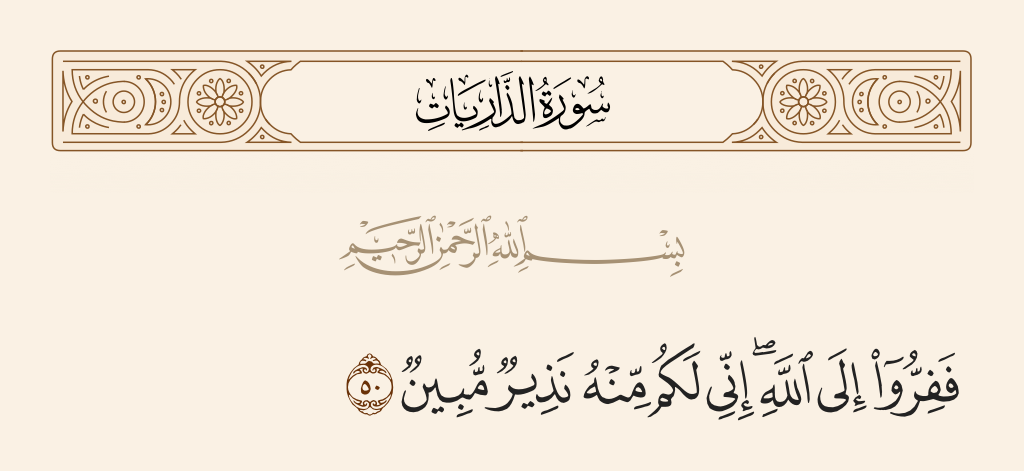 سُورَةُ الذَّارِيَاتِ
بِسْمِ ٱللَّهِ ٱلرَّحْمَٰنِ ٱلرَّحِيمِ
فَفِرُّوٓا۟ إِلَى ٱللَّهِ ۖ إِنِّى لَكُم مِّنْهُ نَذِيرٌ مُّبِينٌ ٥٠